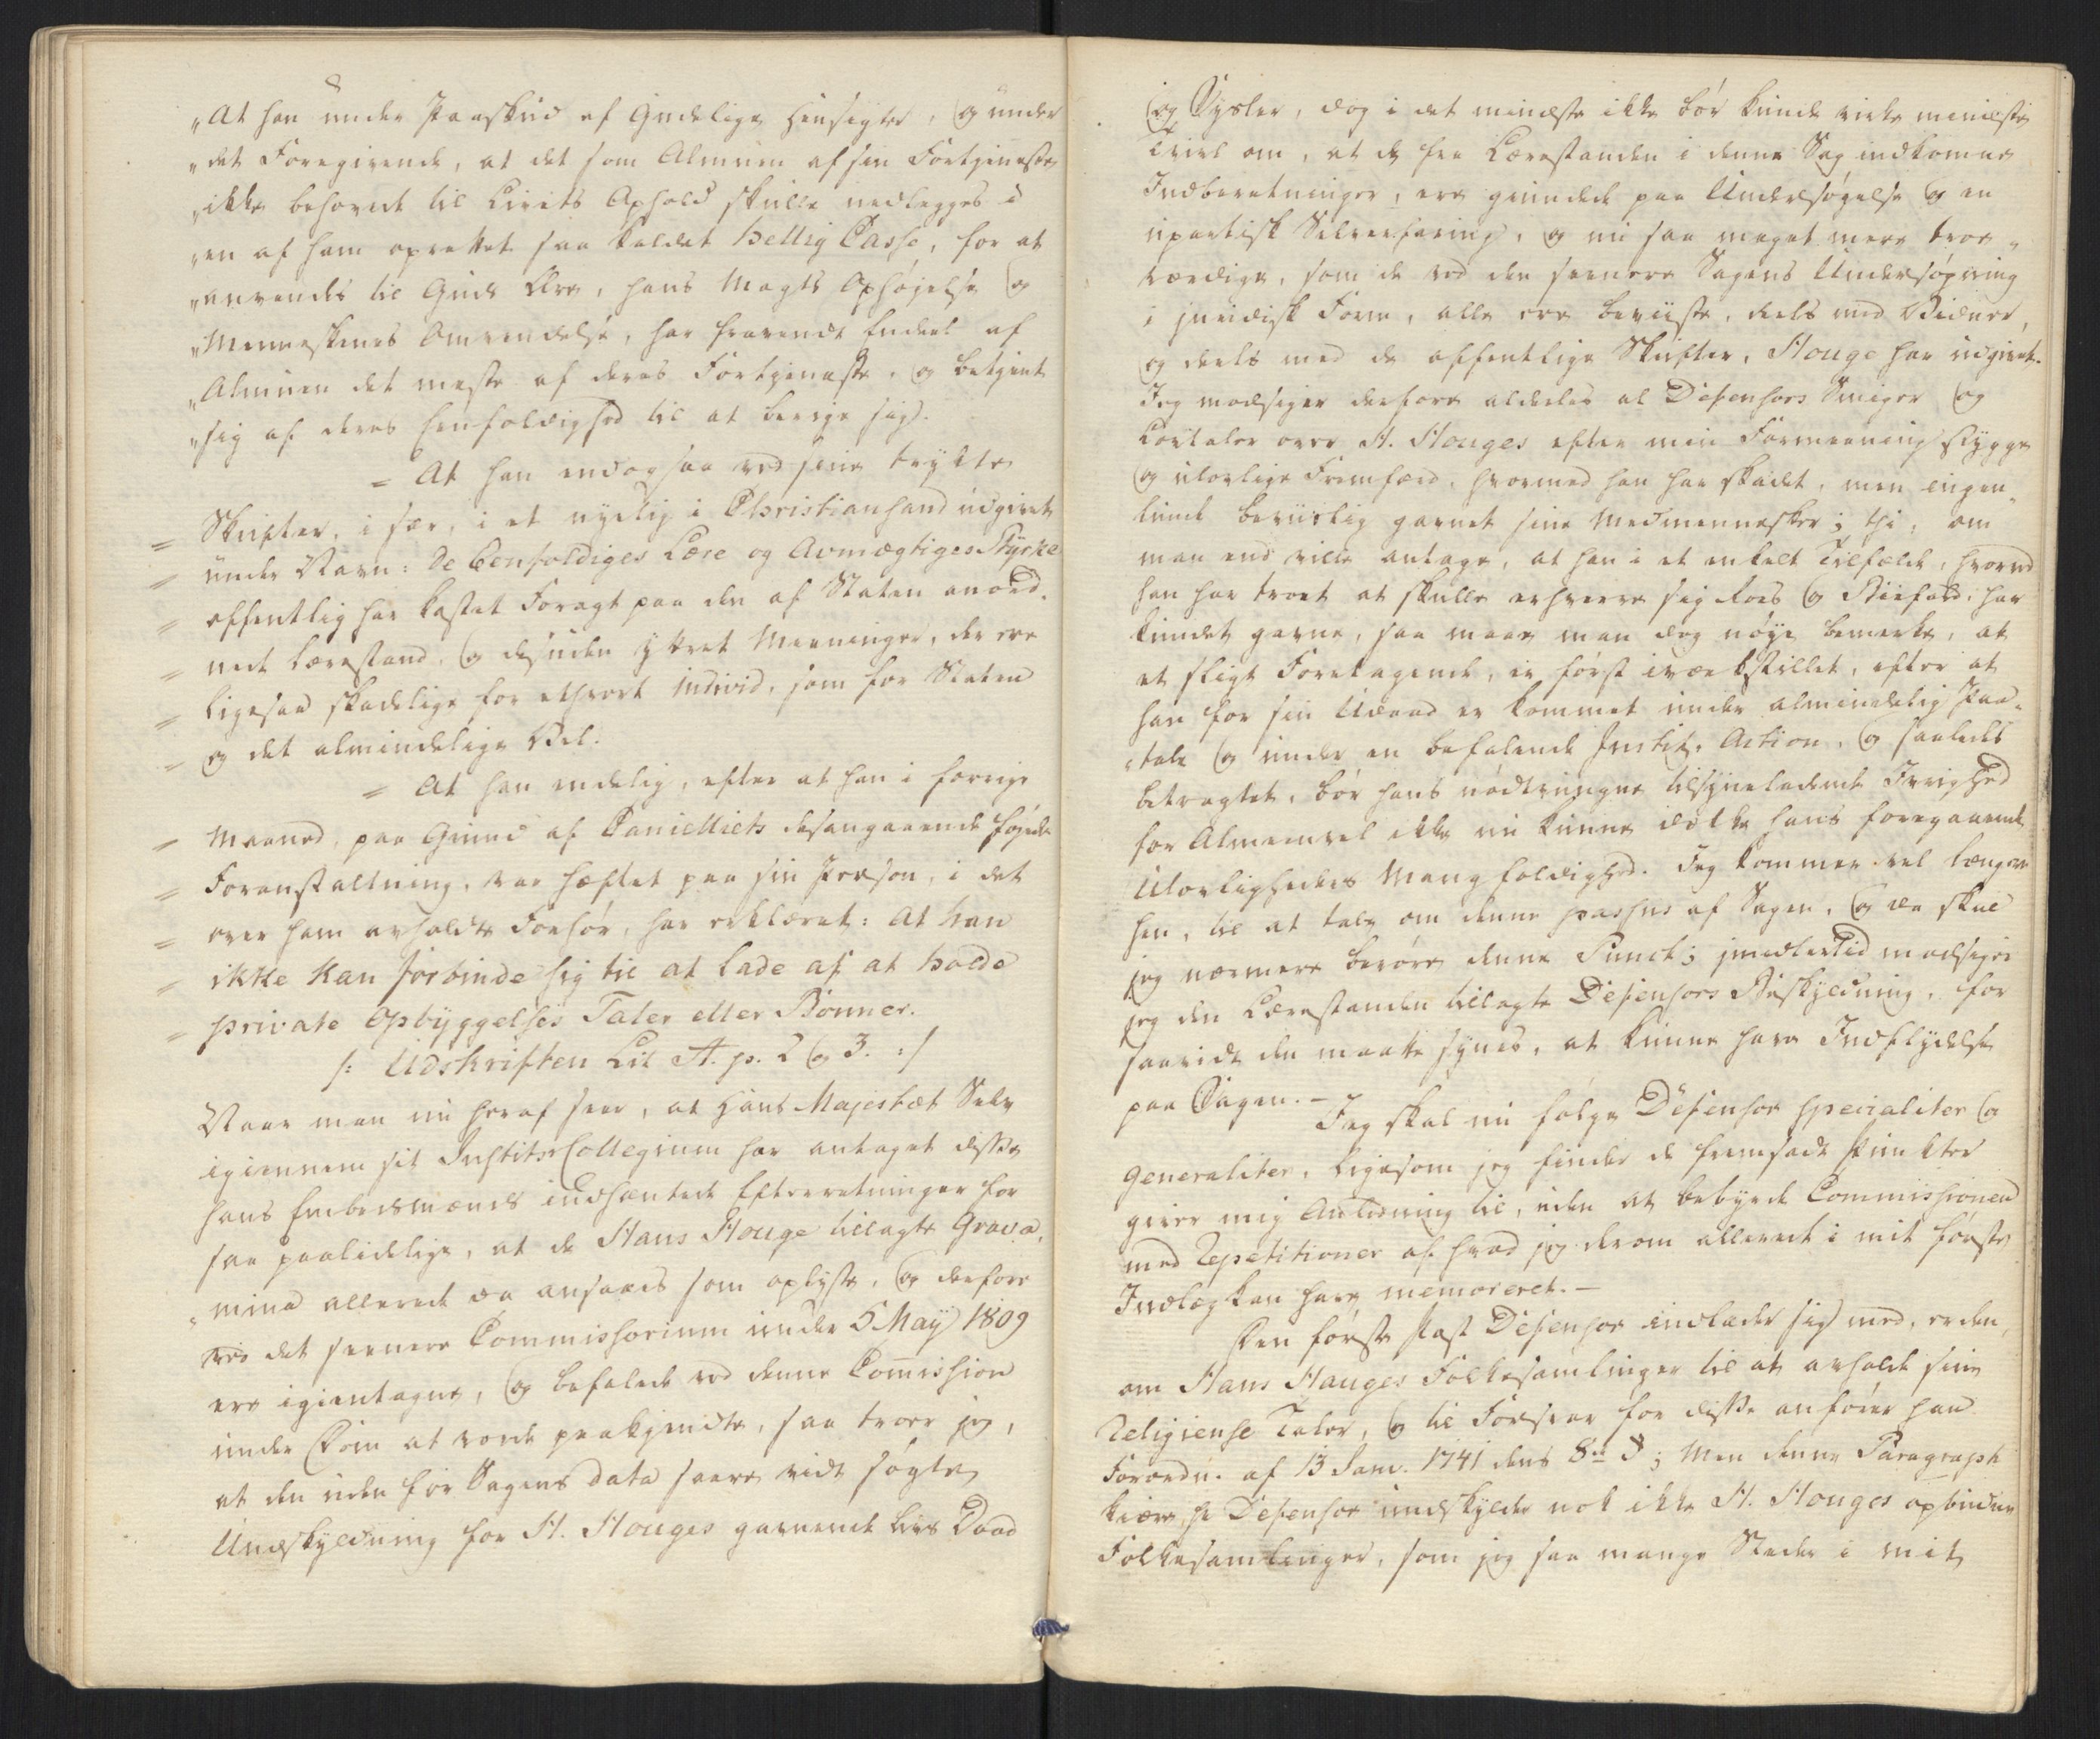 „At han under Paaskud af Gudelige Hensigter, og under
„det Foregivende, at det som Almuen af sin Fortjeneste
„ikke behøvede til Livets Ophold skulle nedlegges i
„en af ham oprettet saa kaldet Hellig Casse, for at
„anvendes til Guds Ære, hans Magts Ophøjelse og
„Menneskenes Omvendelse, har fravendt Endeel af
„Almuen det meste af deres Fortjeneste, og betjent
„sig af deres Eenfoldighed til at berige sig.
= At han endogsaa ved sine trykte
= Skrifter, i sær, i et nyelig i Christiansand udgivet
= under Navn: De Eenfoldiges Lære og Avmægtiges Styrke
= offentlig har kastet Foragt paa den af Staten anord-
= nede Lærestand, og desuden yttret Meeninger, der ere
= ligesaa skadelige for ethvert individ, som for Staten
= og det almindelige Vel.
= At han endelig, efter at han i forrige
= Maaned, paa Grund af Cancelliets desangaaende føjede
= Foranstaltning, var hæftet paa sin Person, i det
= over ham avholdte Forhør, har erklæret: At han
= ikke kan forbinde sig til at lade af at holde
= private Opbyggelses Taler eller Bønner.
/: Udskriften Lit A. p. 2 og 3. :/
Naar man nu heraf seer, at Hans Majestæt Selv
igiennem sit Justits Collegium har antaget disse
hans Embedsmænds indhentede Efterretninger for
saa paalidelige, at de Hans Houge tillagte Grava-
„mina allerede da ansaaes som oplyste, og derfore
ved det seenere Commissorium under 5 May 1809
ere igientagne, og befalede ved denne Comission
under Dom at vorde paakjendte, saa troer jeg,
at den uden for Sagens data saare vidt søgte
Undskyldning for H. Houges gavnende Liv Daad
og Sysler, dog i det mindste ikke bør kunde virke mindste
Tvivl om, at de fra Lærestanden i denne Sag indkomne
Indberetninger, ere grundede paa Undersøgelse og en
upartisk Selverfaring, og nu saa meget mere troe-
værdige, som de ved den seenere Sagens Undersøgning
i juridisk Form, alle ere beviiste, deels med Vidner,
og deels med de offentlige Skrifter, Houge har udgivet.
Jeg modsiger derfore aldeles al Defensors Smiger og
Lovtaler over H. Houges efter min Formeening stygge
og ulovlige Fremfærd, hvormed han har skadet, men ingen-
lunde beviislig gavnet sine Medmennesker; thi, om
man end ville antage, at han i et enkelt Tilfælde, hvorved
han har troet at skulle erhverve sig Roes og Biefald, har
kundet gavne, saa maae man dog nøye bemerke, at
et sligt Foretagende, er først iværkstillet, efter at
han for sin Udaad er kommet under almindelig Paa-
„tale og under en befalende Justits Action, og saaledes
betragtet, bør hans nødtvungne tilsyneladende Ivrighed
for Almeenvel ikke nu kunne dække hans foregaaende
Ulovligheders Mangfoldighed. Jeg kommer vel længere
hen, til at tale om denne passus af Sagen, og da skal
jeg nærmere berøre denne Punct; imidlertid modsiger
jeg den Lærestanden tillagte Defensors Beskyldning, for
saavidt den maatte synes, at kunne have Indflydelse
paa Sagen. –
Jeg skal nu følge Defensor specialiter og
generaliter, ligesom jeg finder de fremsadte Punkter
giver mig Anledning til, uden at bebyrde Commissionen
med Repetitioner af hvad jeg derom allerede i mit første
Indlæg kan have memoreret. –
Den første Post Defensor indlader sig med, er den,
om Hans Hauges Folkesamlinger til at avholde sine
Religieuse Taler, og til Forsvar for disse anfører han
Forordn. af 13 Janv. 1741 dens 8de §; Men denne Paragraph
kiære Hr Defensor undskylder nok ikke H. Houges
Folkesamlinger, som jeg saa mange Steder i mit